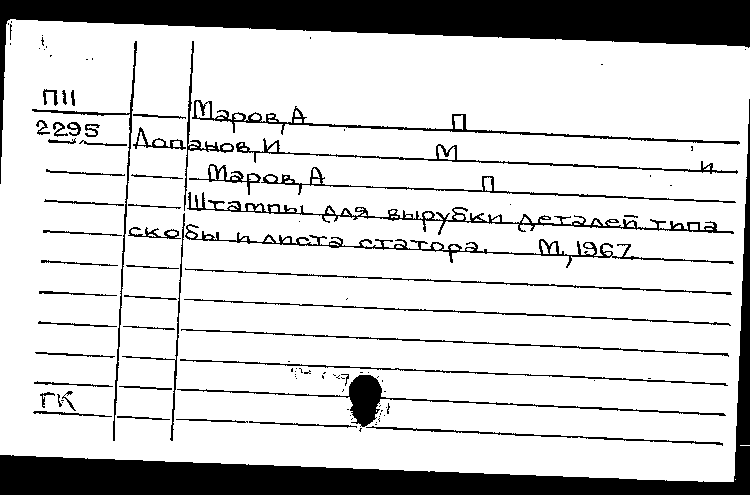 П11
Маров, А П
2295
Лопанов, И М и
Маров, А П
Штампы для вырубки деталей типа
скобы и листа статора. М., 1967.
ГК